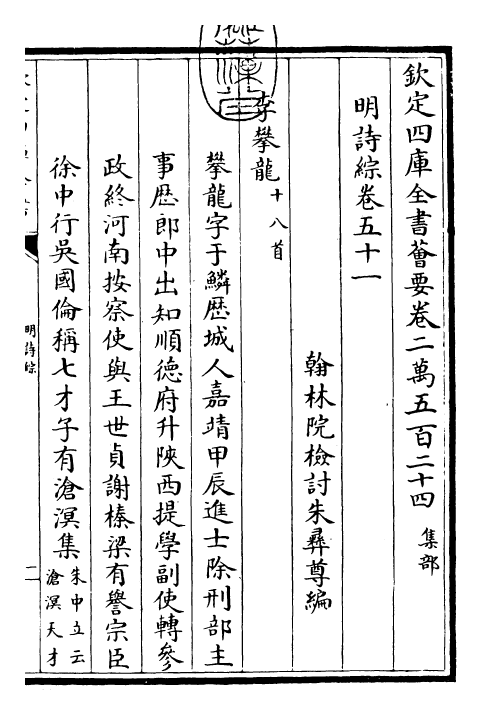 欽定四庫全書薈要卷二萬五百二十四 集部
明詩綜卷五十一
翰林院檢討朱彝尊編
李攀龍十八首
攀龍字于鱗歷城人嘉靖甲辰進士除刑部主
事歷郎中出知順德府升陝西提學副使轉參
政終河南按察使與王世貞謝榛梁有譽宗臣
徐中行吳國倫稱七才子有滄溟集朱中立云
滄溟天才
明詩綜